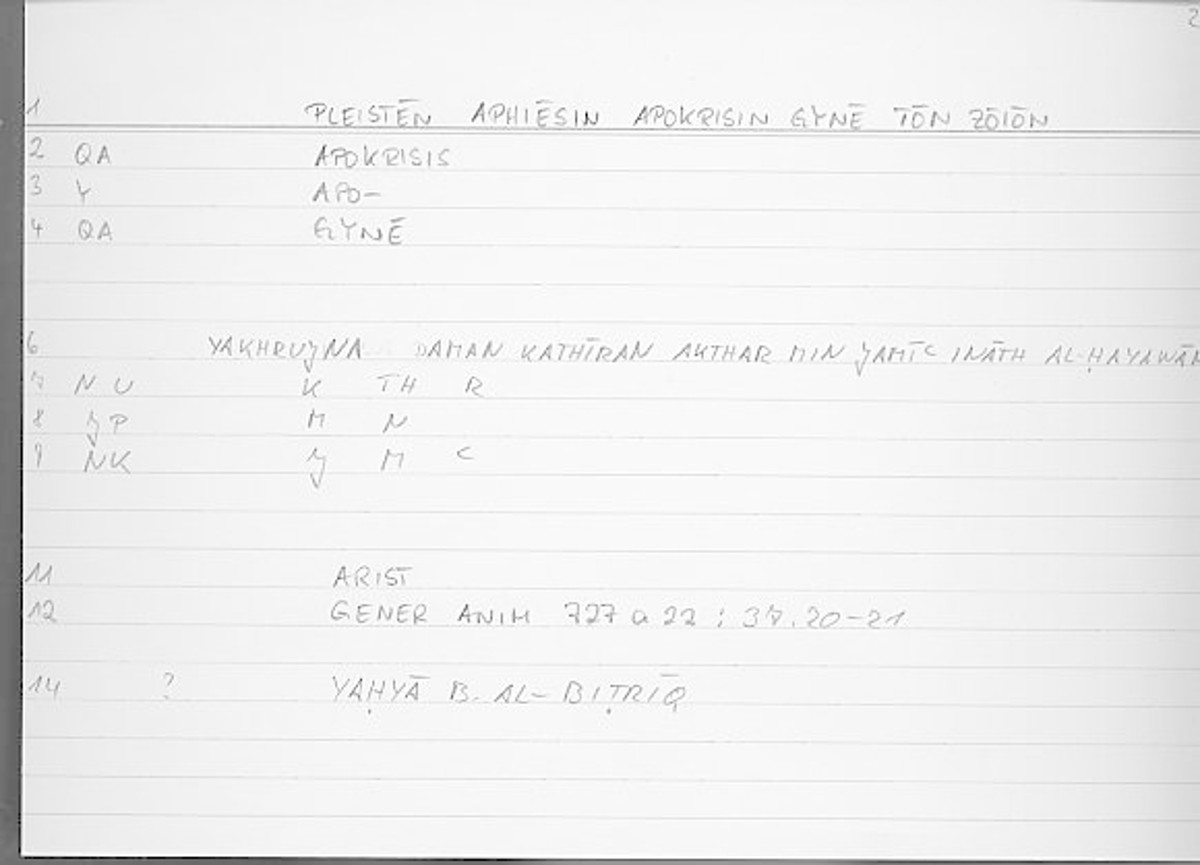 2
1 PLEISTĒN APHIĒSIN APOKRISIN GYNĒ TŌN ZŌIŌN
2 QA APOKRISIS
3 Y APO-
4 QA GYNĒ
6 YAKHRUJNA DAMAN KATHĪRAN AKTHAR MIN JAMĪC INĀTH AL-ḤAYAWĀN
7 N U K TH R
8 JP M N
9 NK J M C
11 ARIST
12 GENER ANIM 727 a 22 ; 37.20-21
14 ? YAḤYĀ B. AL-BIṬRĪQ